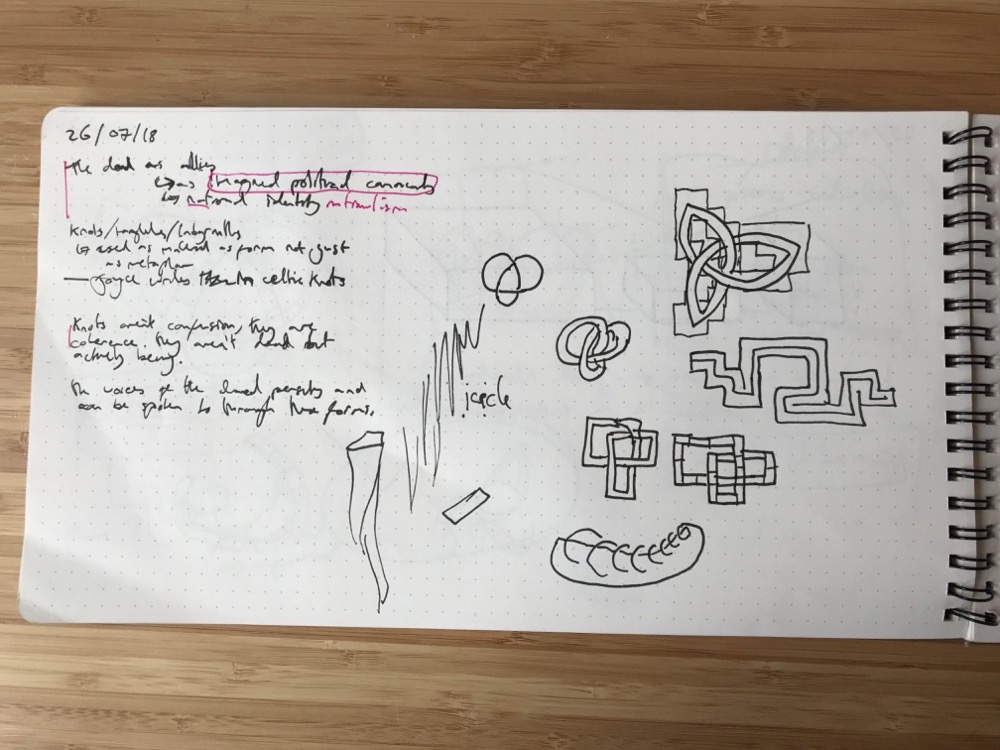 26/07/18
the dead as allies
↳ as imagined political community
↳ national identity nationalism
Knots/tangles/labyrinths
↳ used as material as form not just
as metaphor
— Joyce circles celtic knots
Knots aren't confusion, they are
coherence. They aren't dead but
actively being.
The voices of the dead persist and
can be spoken to through these forms.
icicle